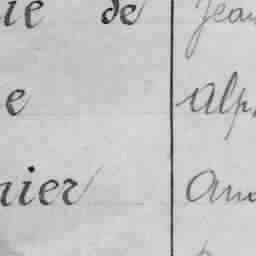 ie de Jean
e Alp
nier And